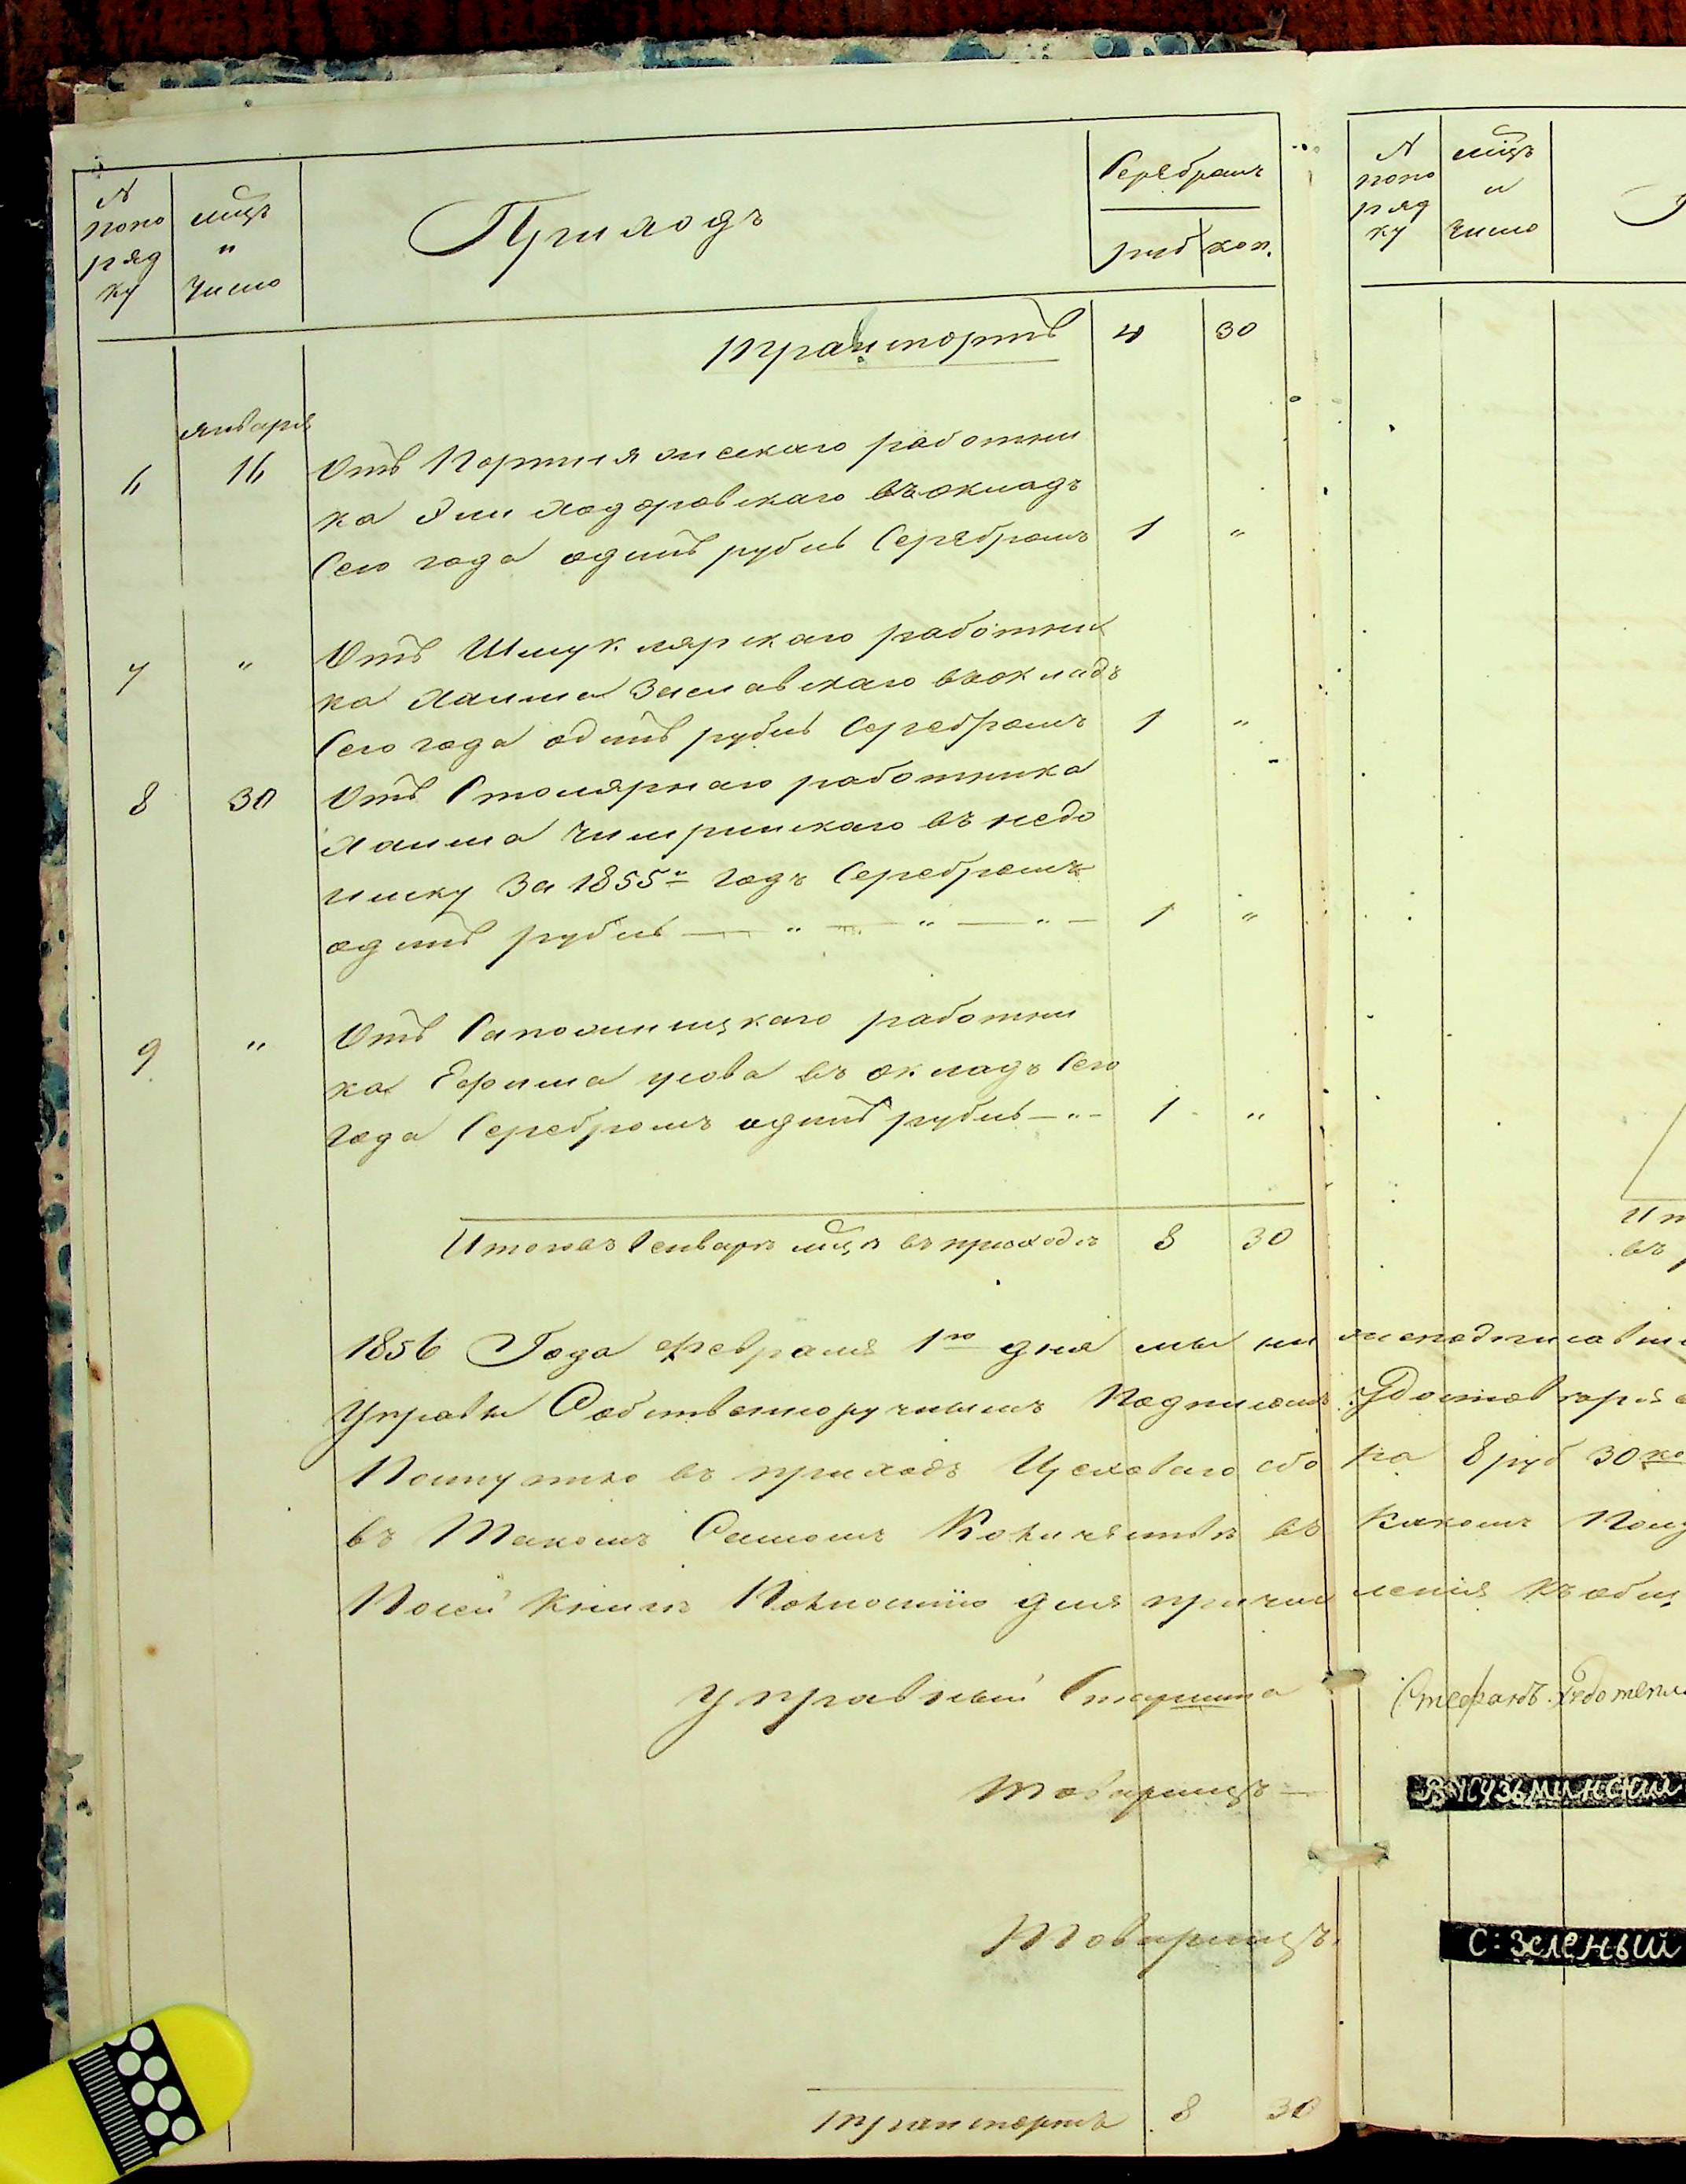 № попорядку
мцъ и число
Приходъ
Серебромъ
руб коп.
транспортъ 4 30
января
6 16 Отъ Портняжскаго работни
ка Эли Ходоровскаго въ окладъ
Сего года одинъ рубль Серебромъ 1 "
7 " Отъ Шмуклярскаго работни
ка Хаима Заславскаго въ окладъ
Сего года одинъ рубль Серебромъ 1 "
8 30 Отъ Столярнаго работника
Хаима Чигринскаго въ недо
имку За 1855й годъ Серебромъ
одинъ рубль — " — " — " — 1 "
9 " Отъ Сапожницкаго работни
ка Ефима усова въ окладъ Сего
года Серебромъ одинъ рубль — " — 1 "
Итого въ Январѣ мцѣ въ приходѣ 8 30
1856 Года февраля 1го дня мы ни жеподписавши
Управы Собственноручнымъ Подписомъ Удостоверя
Поступило въ приходъ Цеховаго сбо ра 8 руб 30 ко
въ Такомъ Самомъ Количествѣ въ Какомъ
Посей Книгѣ Полностію для причис ленія Къ общ
Управный Старшина
Стефанъ
Товарищъ —
В Кузьминский
Товарищъ.
С: Зеленый
транспортъ 8 30
№ попорядку
мцъ и число